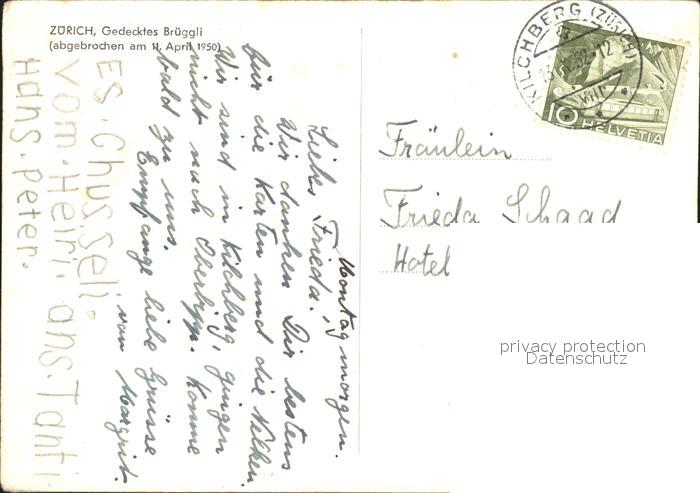 ZÜRICH, Gedecktes Brüggli
(abgebrochen am 11. April 1950)
Montag morgen.
Liebes Frieda.
Wir danken Dir bestens
für die Karten und die Nelken.
Wir sind in Kilchberg, gingen
nicht nach Oberlipp. Komme
bald zu uns.
Empfange liebe Grüsse
von Margrit.
ES. Chusseli.
vom. Heiri. ans. Tanti
Hans. Peter.
KILCHBERG (ZÜRICH)
10 HELVETIA
Fräulein
Frieda Schaad
Hotel
privacy protection
Datenschutz